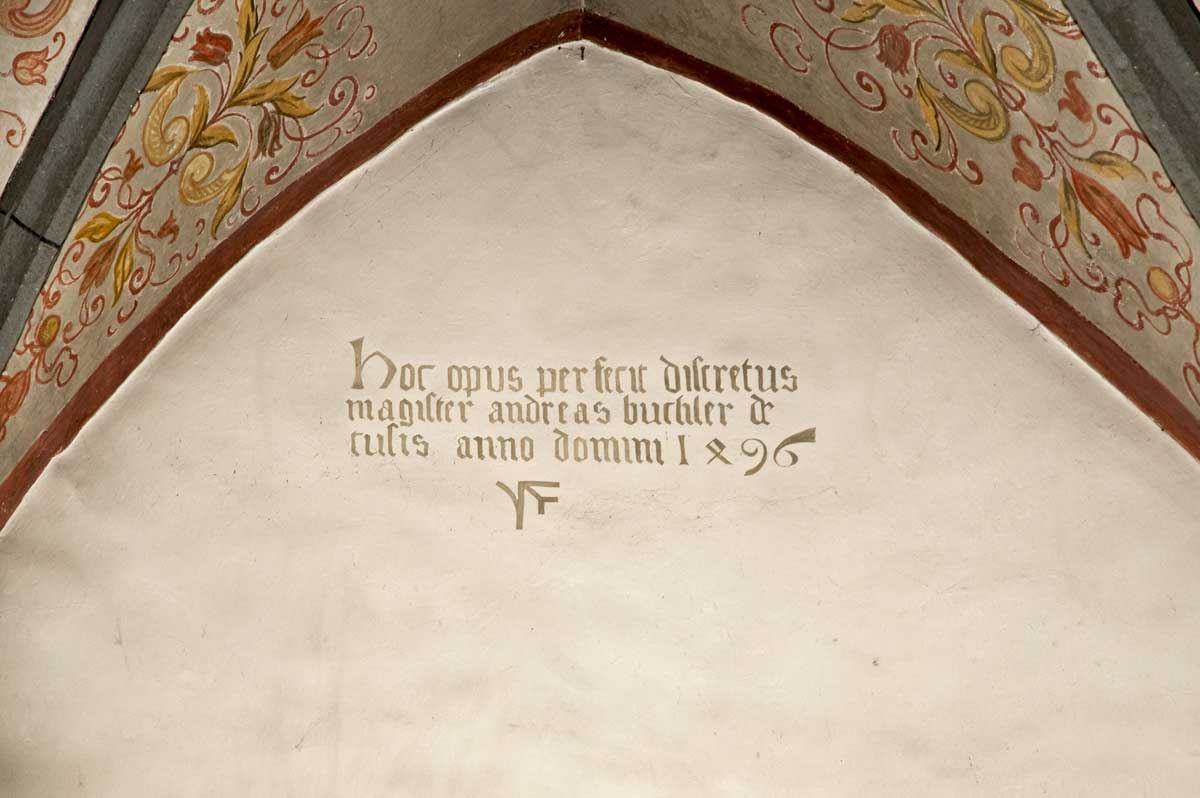 Hoc opus perfecit discretus
magister andreas buchler de
tusis anno domini 1496